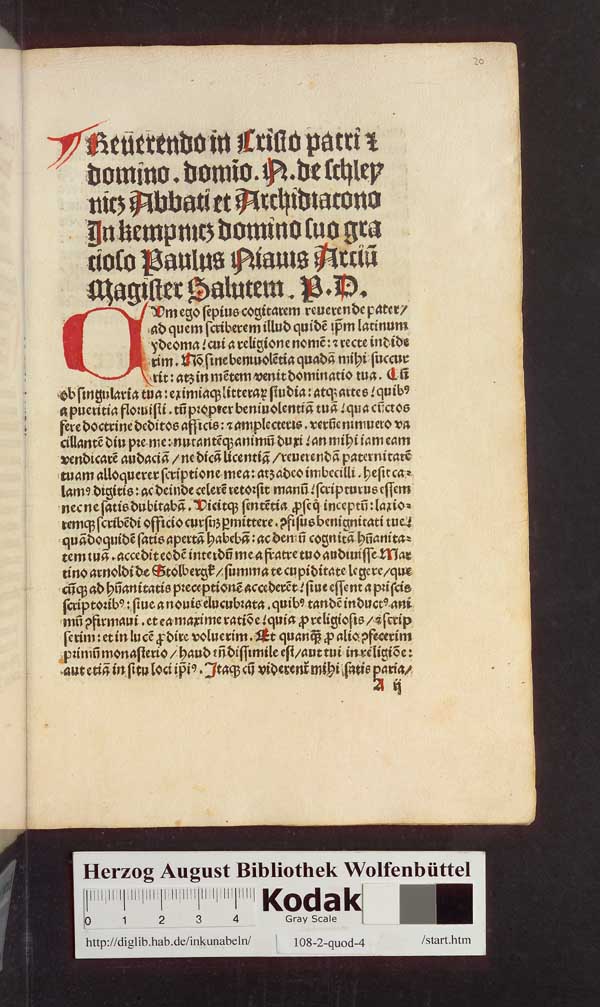 20
Reuerendo in Cristo patri ⁊
domino. domīo. N. de schley
nicz Abbati et Archidiacono
In kempnicz domino suo gra
cioso Paulus Niauis Arciū
Magister Salutem. P. D.
CVm ego sepius cogitarem reuerende pater/
ad quem scriberem illud quidē ip̄m latinum
ydeoma/ cui a religione nomē: ⁊ recte indide
rim. Nō sine beniuolētia quadā mihi succur
rit: atꝫ in mētem venit dominatio tua. Cū
ob singularia tua: eximiaqꝫ litteraꝝ studia: atqꝫ artes/ quibꝰ
a pueritia floruisti. tū propter beniuolentiā tuā/ qua cūctos
fere doctrine deditos afficis: ⁊ amplecteris. verūenimuero va
cillantē diu p̱ me: nutantēqꝫ animū duxi/ an mihi iam eam
vendicarē audaciā/ ne dicā licentiā/ reuerendā paternitatē
tuam alloquerer scriptione mea: atꝫ adeo imbecilli. hesit ca-
lamꝰ digitis: ac deinde celerē retorsit manū/ scripturus essem
nec ne satis dubitabā. Vicitqꝫ sentētia ꝓseq̄ inceptū: laxio-
remqꝫ scribēdi officio cursū ꝑmittere. ꝯfisus benignitati tue/
quādoquidē satis apertā habebā: ac deniꝫ cognitā hūanita-
tem tuā. accedit eodē interdū me a fratre tuo audiuisse Mar
tino arnoldi de Stolbergk/ summa te cupiditate legere/ que
cūqꝫ ad hūanitatis preceptionē accederēt/ siue essent a priscis
scriptoribꝰ: siue a nouis elucubrata. quibꝰ tandē inductꝰ ani
mū ꝯfirmaui. et ea maxime ratiōe/ quia ꝓ religiosis/ ⁊ scrip
serim: et in lucē ꝓdire voluerim. Et quanqꝫ ꝓ alio ꝯfecerim
primū monasterio/ haud tn̄ dissimile est/ aut tui in religiōe:
aut etiā in situ loci ip̄iꝰ. Itaqꝫ cū viderent̄ mihi satis paria/
A ij
Herzog August Bibliothek Wolfenbüttel
0 1 2 3 4 Kodak
Gray Scale
http://diglib.hab.de/inkunabeln/ 108-2-quod-4 /start.htm